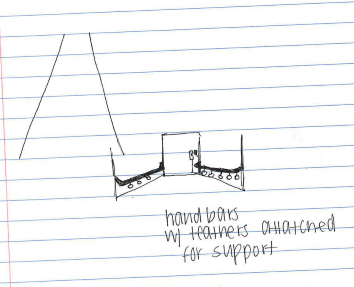 hand bars
w/ teathers attatched
for support